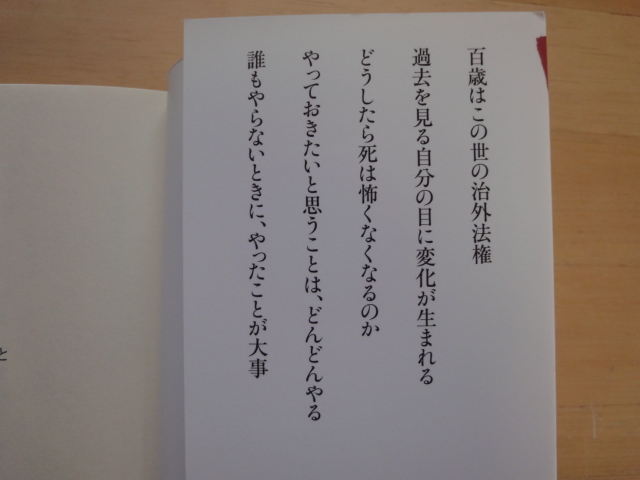 百歳はこの世の治外法権
過去を見る自分の目に変化が生まれる
どうしたら死は怖くなくなるのか
やっておきたいと思うことは、どんどんやる
誰もやらないときに、やったことが大事
と